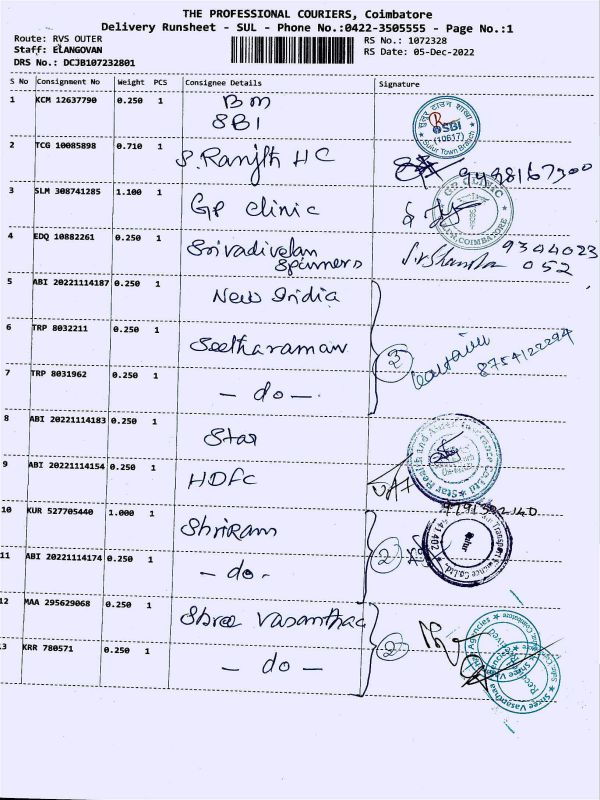 THE PROFESSIONAL COURIERS, Coimbatore
Delivery Runsheet - SUL - Phone No.:0422-3505555 - Page No.:1
Route: RVS OUTER
RS No.: 1072328
Staff: ELANGOVAN
RS Date: 05-Dec-2022
DRS No.: DCJB107232801
S No Consignment No Weight PCS Consignee Details Signature
1 KCM 12637790 0.250 1 BM
SBI
SBI
(10617)
Sulur Town Branch
2 TCG 10085898 0.710 1 S. Ranjith HC
3 SLM 308741285 1.100 1 GP Clinic
G.P. CLINIC
COIMBATORE
4 EDQ 10882261 0.250 1 Srivadivelan 9344023
Spinners 052
5 ABI 20221114187 0.250 1 New India
6 TRP 8032211 0.250 1 Seetharaman 3
8754122294
7 TRP 8031962 0.250 1 - do -
8 ABI 20221114183 0.250 1 Star
Star Health and Allied Insurance Co.Ltd
9 ABI 20221114154 0.250 1 HDFC
10 KUR 527705440 1.000 1 Shriram
11 ABI 20221114174 0.250 1 - do - 2
Transport Finance Co.Ltd.
641 402
Sulur
12 MAA 295629068 0.250 1 Shree Vasanthaa
2
3 KRR 780571 0.250 1 - do -
Shree Vasanthaa Agencies